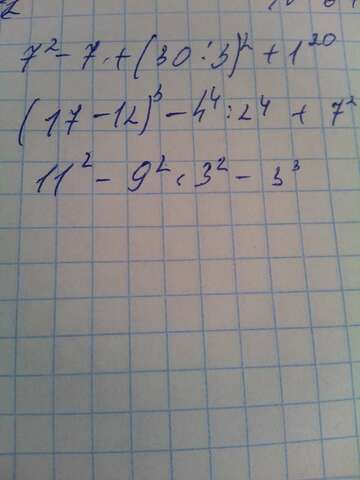 7² - 7 + (30 : 3)² + 1²⁰
(17 - 12)³ - 4⁴ : 2⁴ + 7²
11² - 9² : 3² - 3³